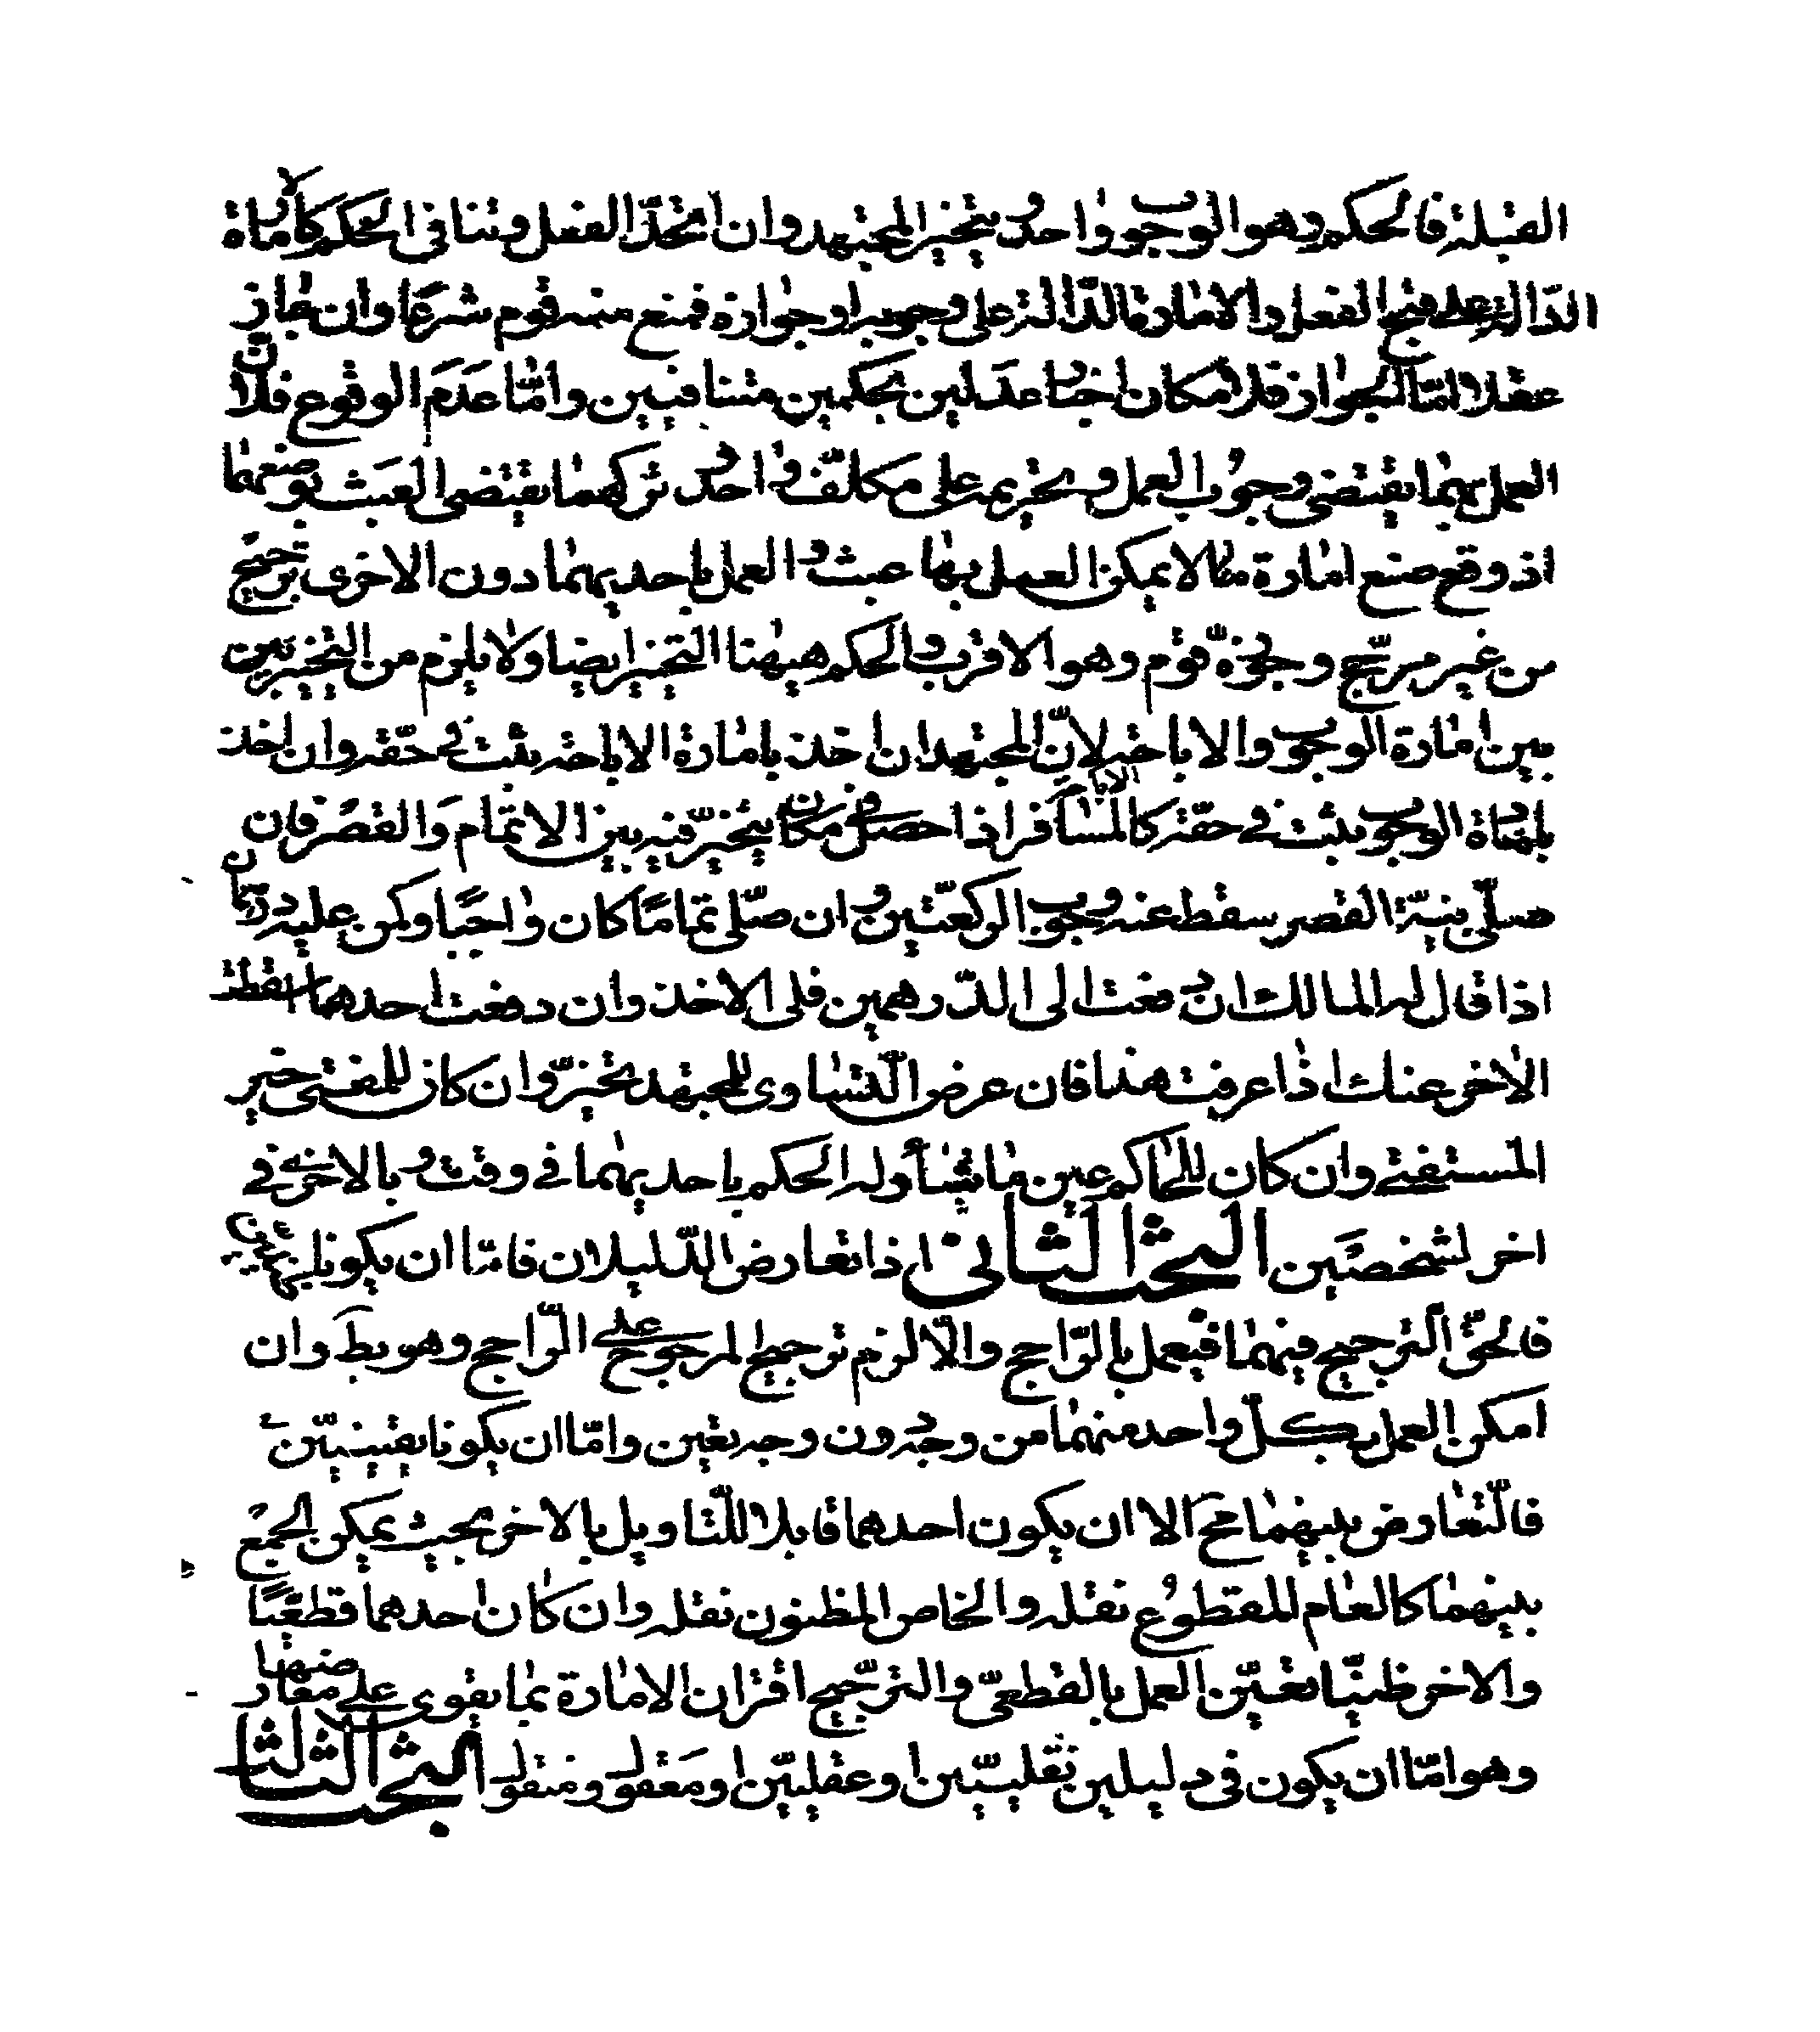 القبلة فالحكم وهو الوجوب واحد ويتخير المجتهد وان اتحد الفعل وتنافى الحكم كالامارة
الدّالة على قبح الفعل والامارة الدّالة على وجوبه او جوازه فمنع منه قوم شرعًا وان جاز
عقلا امّا الجواز فلامكان اخبار عدلين بحكمين متنافيين وامّا عدم الوقوع فلانّ
العمل بهما يقتضى وجوب العمل وتحريمه على مكلّف واحد وتركهما يقتضى العبث بوضعهما
اذ وضع امارة لا يمكن العمل بها عبث والعمل باحديهما دون الاخرى ترجيح
من غير مرجّح وجوّزه قوم وهو الاقرب والحكم هيهنا التخيير ايضا ولا يلزم من التخيير بين
بين امارة الوجوب والاباحة لانّ المجتهد ان اخذ بامارة الاباحة يثبت في حقّه وان اخذ
بامارة الوجوب يثبت في حقّه كالمسافر اذا حصل في مكان يتخيّر فيه بين الاتمام والقصر فان
صلّى بنيّة القصر سقط عنه وجوب الركعتين وان صلّى تمامًا كان واجبًا وكمن عليه درهمان
اذا قال له المالك ان دفعت الى الدّرهمين فلى الاخذ وان دفعت احدهما اسقطت
الاخر عنك اذا عرفت هذا فان عرض التّساوى للمجتهد تخيّر وان كان للمفتى خير
المستفتى وان كان للحاكم عين ما شاء وله الحكم باحديهما في وقت وبالاخرى في
اخر لشخصين البحث الثانى اذا تعارض الدّليلان فامّا ان يكونا
فالحقّ الترجيح فيهما فيعمل بالرّاجح والّا لزم ترجيح المرجوح على الرّاجح وهو بط وان
امكن العمل بكلّ واحد منهما من وجه دون وجه تعين وامّا ان يكونا يقينيّين
فالتّعارض بينهما مح الا ان يكون احدهما قابلا للتّاويل بالاخر بحيث يمكن الجمع
بينهما كالعام المقطوع نقله والخاص المظنون نقله وان كان احدهما قطعيًا
والاخر ظنيًّا تعيّن العمل بالقطعىّ والترجيح اقتران الامارة بما يقوى على معارضها
وهو امّا ان يكون في دليلين نقليّين او عقليّين او معقول ومنقول البحث الثالث